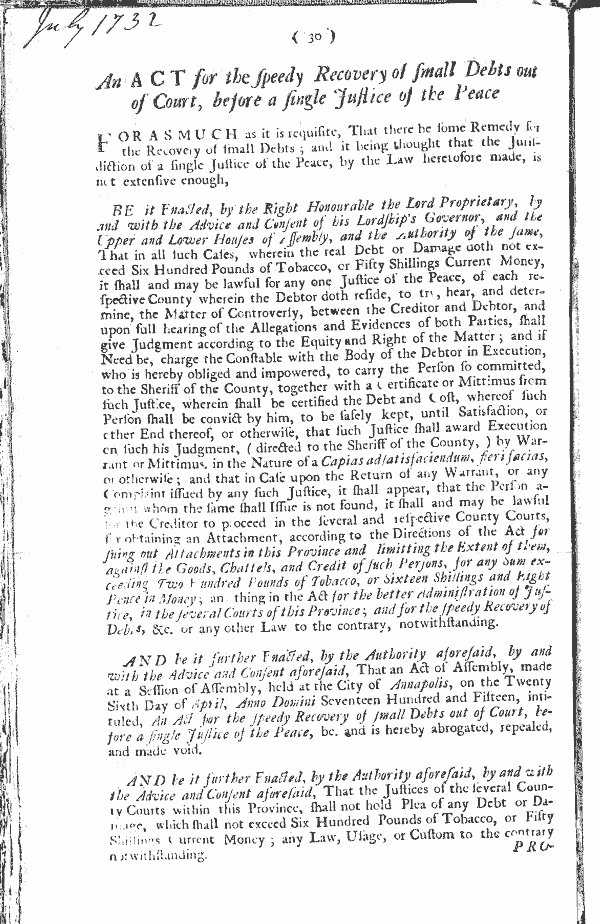 July 1732
( 30 )
An ACT for the speedy Recovery of small Debts out
of Court, before a single Justice of the Peace
FORASMUCH as it is requisite, That there be some Remedy for
the Recovery of small Debts; and it being thought that the Juris-
diction of a single Justice of the Peace, by the Law heretofore made, is
not extensive enough,
BE it Enacted, by the Right Honourable the Lord Proprietary, by
and with the Advice and Consent of his Lordship's Governor, and the
Upper and Lower Houses of Assembly, and the Authority of the same,
That in all such Cases, wherein the real Debt or Damage doth not ex-
ceed Six Hundred Pounds of Tobacco, or Fifty Shillings Current Money,
it shall and may be lawful for any one Justice of the Peace, of each re-
spective County wherein the Debtor doth reside, to try, hear, and deter-
mine, the Matter of Controversy, between the Creditor and Debtor, and
upon full hearing of the Allegations and Evidences of both Parties, shall
give Judgment according to the Equity and Right of the Matter; and if
Need be, charge the Constable with the Body of the Debtor in Execution,
who is hereby obliged and impowered, to carry the Person so committed,
to the Sheriff of the County, together with a Certificate or Mittimus from
such Justice, wherein shall be certified the Debt and Cost, whereof such
Person shall be convict by him, to be safely kept, until Satisfaction, or
other End thereof, or otherwise, that such Justice shall award Execution
on such his Judgment, (directed to the Sheriff of the County,) by War-
rant or Mittimus, in the Nature of a Capias ad satisfaciendum, fieri facias,
or otherwise; and that in Case upon the Return of any Warrant, or any
Complaint issued by any such Justice, it shall appear, that the Person a-
gainst whom the same shall Issue is not found, it shall and may be lawful
for the Creditor to proceed in the several and respective County Courts,
for obtaining an Attachment, according to the Directions of the Act for
suing out Attachments in this Province and limitting the Extent of them,
against the Goods, Chattels, and Credit of such Persons, for any Sum ex-
ceeding Two Hundred Pounds of Tobacco, or Sixteen Shillings and Eight
Pence in Money; any thing in the Act for the better Administration of Jus-
tice, in the several Courts of this Province; and for the speedy Recovery of
Debts, &c. or any other Law to the contrary, notwithstanding.
AND be it further Enacted, by the Authority aforesaid, by and
with the Advice and Consent aforesaid, That an Act of Assembly, made
at a Session of Assembly, held at the City of Annapolis, on the Twenty
Sixth Day of April, Anno Domini Seventeen Hundred and Fifteen, inti-
tuled, An Act for the speedy Recovery of small Debts out of Court, be-
fore a single Justice of the Peace, be. and is hereby abrogated, repealed,
and made void.
AND be it further Enacted, by the Authority aforesaid, by and with
the Advice and Consent aforesaid, That the Justices of the several Coun-
ty Courts within this Province, shall not hold Plea of any Debt or Da-
mage, which shall not exceed Six Hundred Pounds of Tobacco, or Fifty
Shillings Current Money; any Law, Usage, or Custom to the contrary
notwithstanding.
PRO-